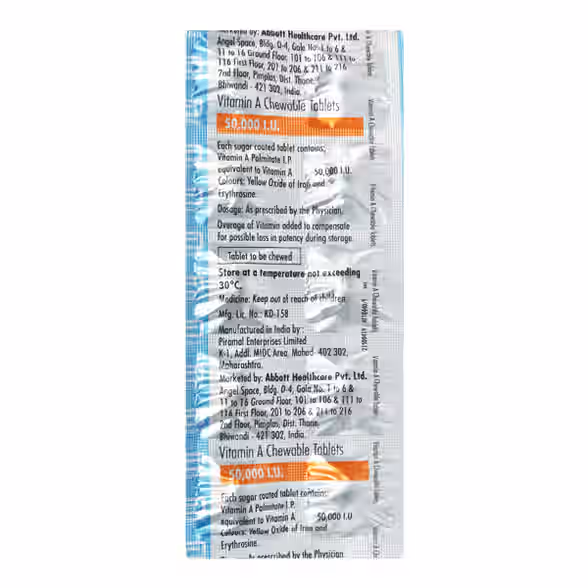 Marketed by: Abbott Healthcare Pvt. Ltd.
Angel Space, Bldg. D-4, Gala No. 1 to 6 &
11 to 16 Ground Floor, 101 to 106 & 111 to
116 First Floor, 201 to 206 & 211 to 216
2nd Floor, Pimplas, Dist. Thane,
Bhiwandi - 421 302, India.
Vitamin A Chewable Tablets
50,000 I.U.
Each sugar coated tablet contains:
Vitamin A Palmitate I.P.
equivalent to Vitamin A 50,000 I.U.
Colours: Yellow Oxide of Iron and
Erythrosine.
Dosage: As prescribed by the Physician.
Overage of Vitamin added to compensate
for possible loss in potency during storage.
Tablet to be chewed
Store at a temperature not exceeding
30°C.
Medicine: Keep out of reach of children.
Mfg. Lic. No.: KD-158
Manufactured in India by:
Piramal Enterprises Limited
K-1, Addl. MIDC Area, Mahad 402 302,
Maharashtra.
Marketed by: Abbott Healthcare Pvt. Ltd.
Angel Space, Bldg. D-4, Gala No. 1 to 6 &
11 to 16 Ground Floor, 101 to 106 & 111 to
116 First Floor, 201 to 206 & 211 to 216
2nd Floor, Pimplas, Dist. Thane,
Bhiwandi - 421 302, India.
Vitamin A Chewable Tablets
50,000 I.U.
Each sugar coated tablet contains:
Vitamin A Palmitate I.P.
equivalent to Vitamin A 50,000 I.U
Colours: Yellow Oxide of Iron and
Erythrosine.
As prescribed by the Physician.
Vitamin A Chewable Tablets
Vitamin A Chewable Tablets
Vitamin A Chewable Tablets
Vitamin A Chewable Tablets
Vitamin A Chewable Tablets